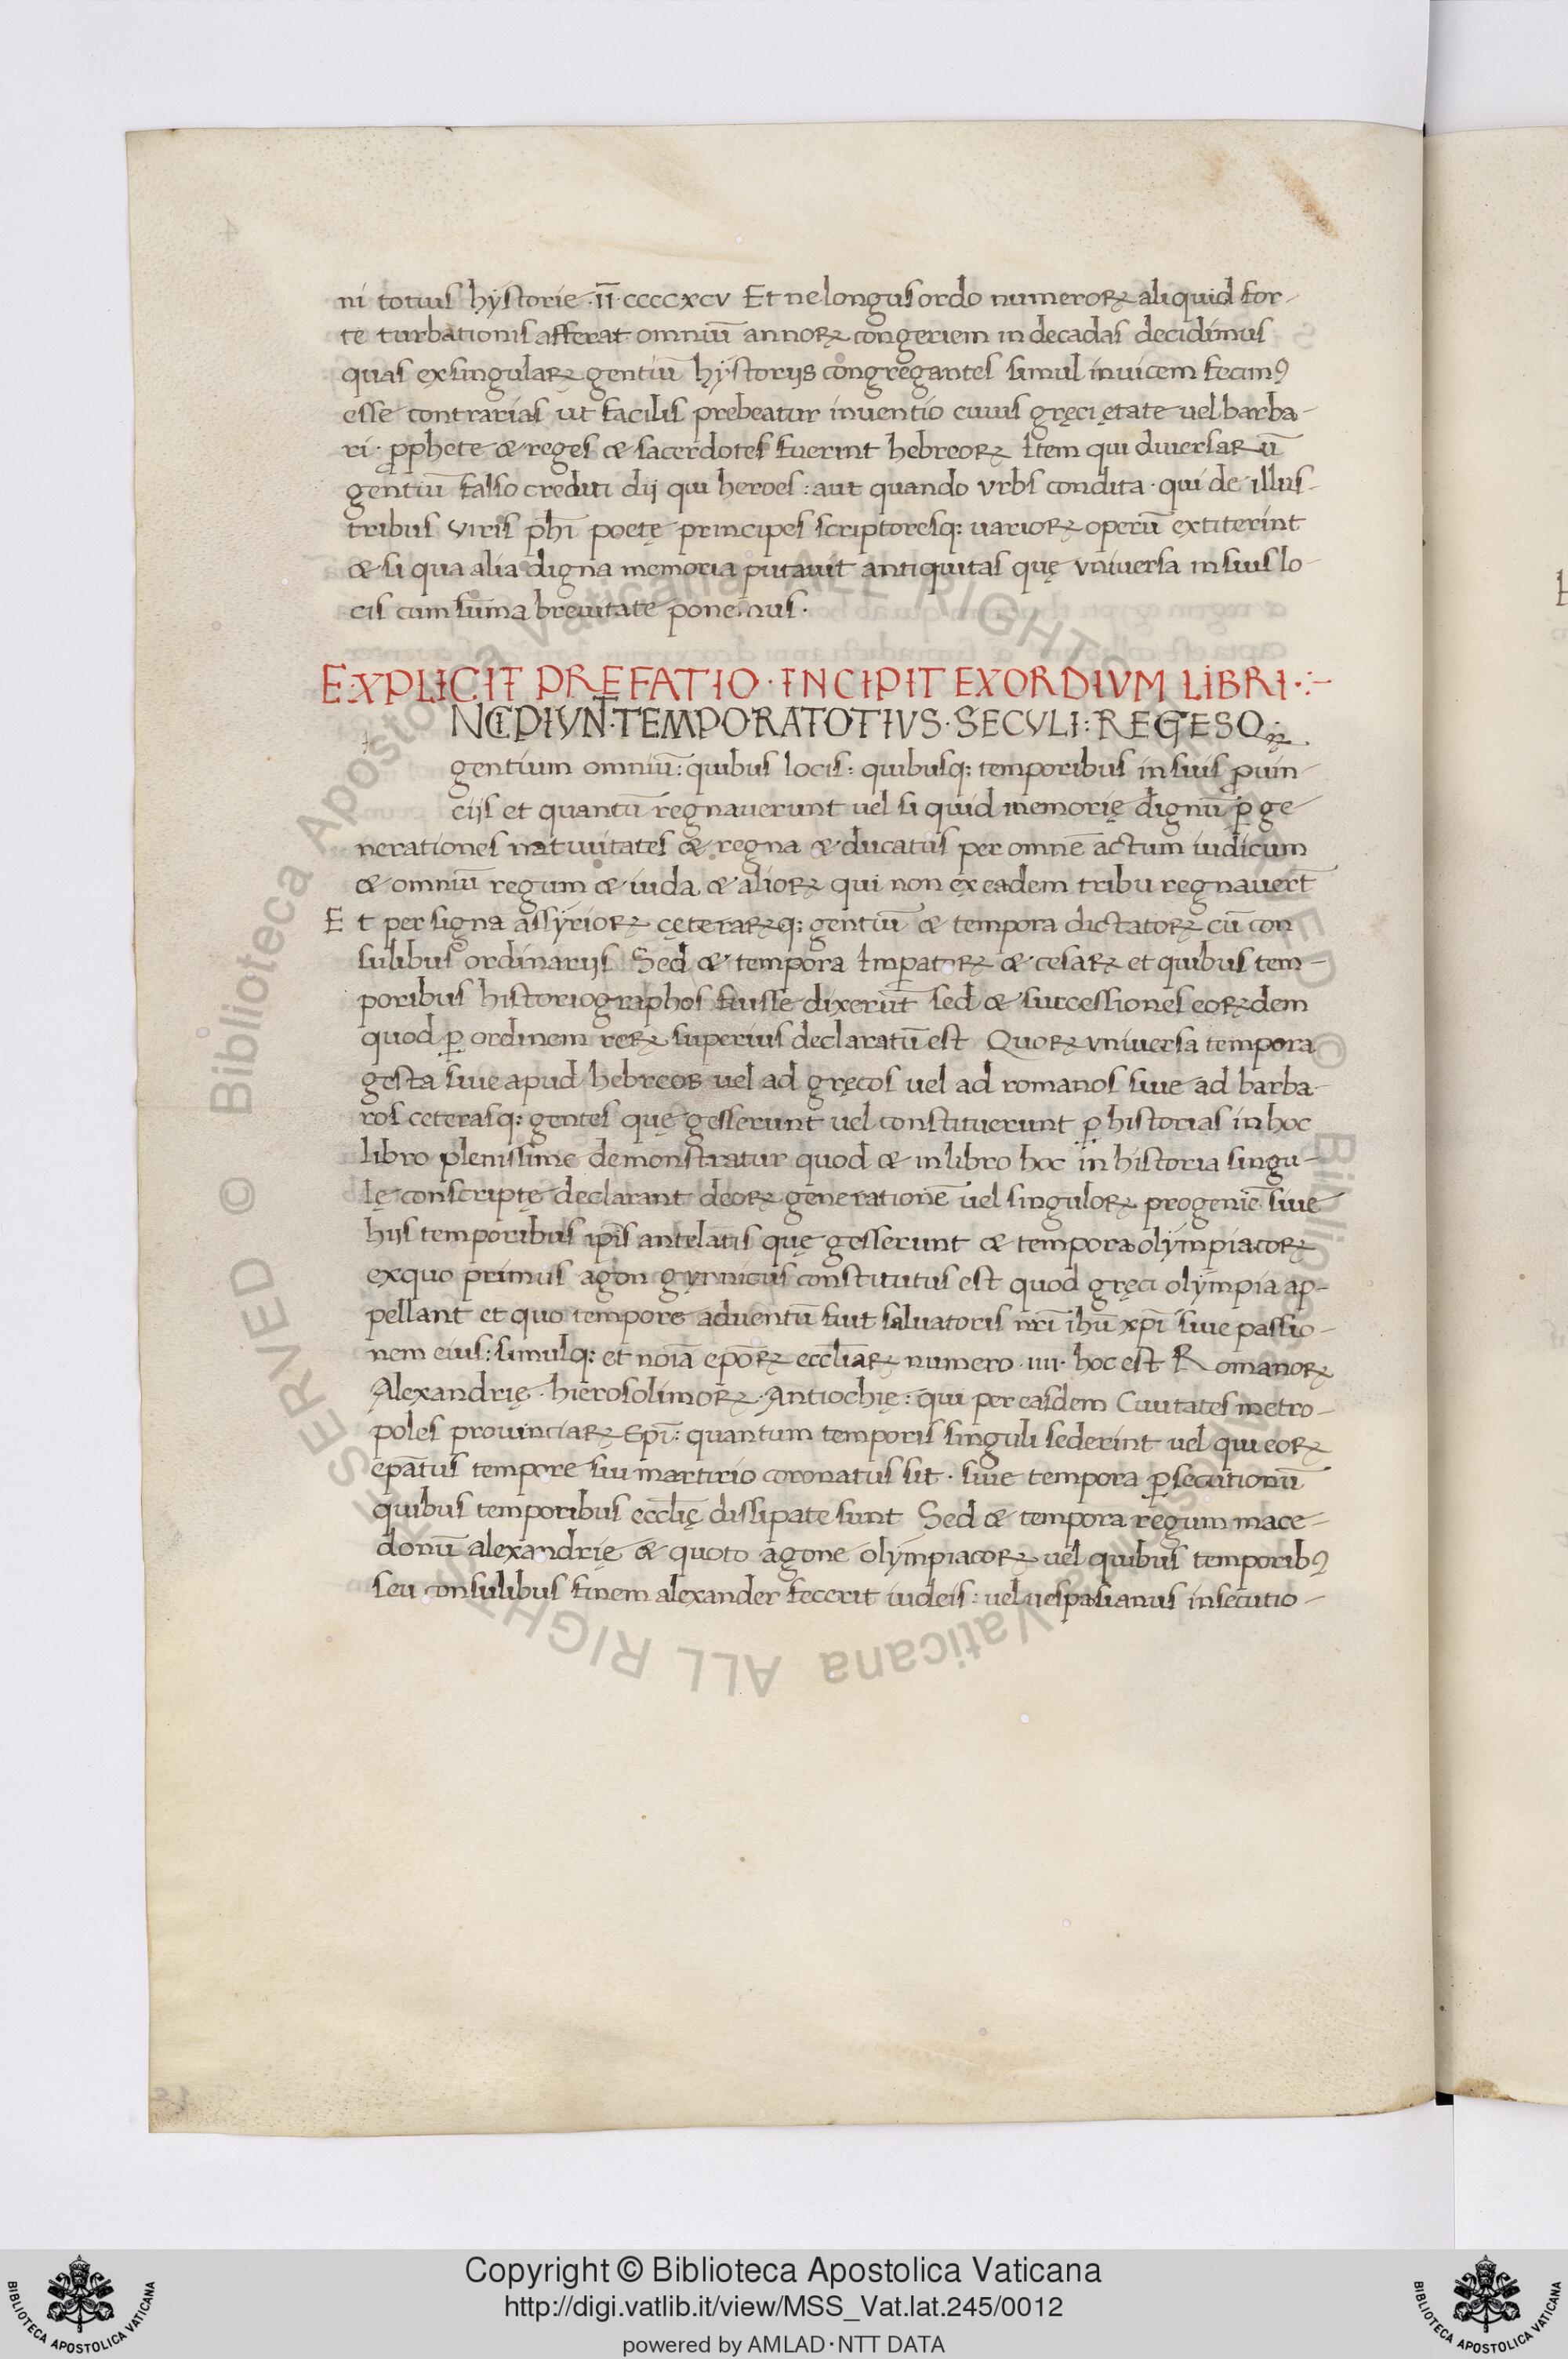 ni totius hystorie ·II̅· ccccxcv Et ne longus ordo numeroꝝ aliquid for-
te turbationis afferat omniū annoꝝ congeriem in decadas decidimus
quas exsingulaꝝ gentiū hystorijs congregantes simul invicem fecimꝰ
esse contrarias ut facilis prebeatur inventio cuius gręci ętate vel barba-
ri · ꝓphete & reges & sacerdotes fuerint hebreoꝝ Item qui diversarū
gentiū falso crediti dij qui heroes : aut quando vrbs condita · qui de illus-
tribus viris phī poetę principes scriptoresq: varioꝝ operū extiterint
& si qua alia digna memoria putavit antiquitas quę vniversa in suis lo-
cis cum sūma brevitate ponemus ·
EXPLICIT PREFATIO · INCIPIT EXORDIVM LIBRI ·:-
NCIPIVNT · TEMPORA TOTIVS · SECVLI : REGESQ;
gentium omniū : quibus locis : quibusq: temporibus in suis ꝓuin-
cijs et quantū regnaverunt vel si quid memorię dignū ꝑ ge-
nerationes nativitates & regna & ducatus per omnē actum iudicum
& omniū regum & iuda & alioꝝ qui non ex eadem tribu regnavert̄
Et per signa assyrioꝝ cęteraꝝq: gentiū & tempora dictatoꝝ cū con
sulibus ordinarijs Sed & tempora Imꝑatoꝝ & cesaꝝ et quibus tem-
poribus historiographos fuisse dixerūt sed & successiones eoꝝdem
quod ꝑ ordinem reꝝ superius declaratū est Quoꝝ vniversa tempora
gesta sive apud hebreos vel ad gręcos vel ad romanos sive ad barba-
ros ceterasq: gentes quę gesserunt vel constituerunt ꝑ historias in hoc
libro plenissime demonstratur quod & in libro hoc in historia singu-
lę conscriptę declarant deoꝝ generationē vel singuloꝝ progeniē sive
hijs temporibus ip̄is antelatis quę gesserunt & tempora olympiacoꝝ
exquo primus agon gymnicus constitutus est quod gręci olympia ap-
pellant et quo tempore adventū fuit salvatoris nr̄i ih̄u xp̄i sive passio-
nem eius : simulq: et noīa ep̄oꝝ eccl̄iaꝝ numero · IIII · hoc est Romanoꝝ
Alexandrię · hierosolimoꝝ · Antiochię : qui per easdem Civitates metro-
poles provinciaꝝ Ep̄i : quantum temporis singuli sederint vel qui eoꝝ
ep̄atus tempore sui martirio coronatus sit · sive tempora ꝑsecutionū
quibus temporibus eccl̄ię dissipate sunt Sed & tempora regum mace-
donū alexandrię & quoto agone olympiacoꝝ vel quibus temporibꝰ
seu consulibus finem alexander fecerit iudeis : vel vespasianus insecutio-
Copyright © Biblioteca Apostolica Vaticana
http://digi.vatlib.it/view/MSS_Vat.lat.245/0012
powered by AMLAD·NTT DATA
BIBLIOTECA APOSTOLICA VATICANA
BIBLIOTECA APOSTOLICA VATICANA
© Biblioteca Apostolica Vaticana ALL RIGHTS RESERVED © Biblioteca Apostolica Vaticana ALL RIGHTS RESERVED